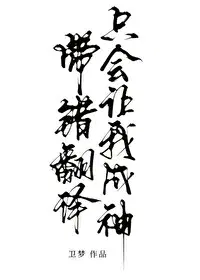 只会让我成神
带错翻译
卫梦 作品